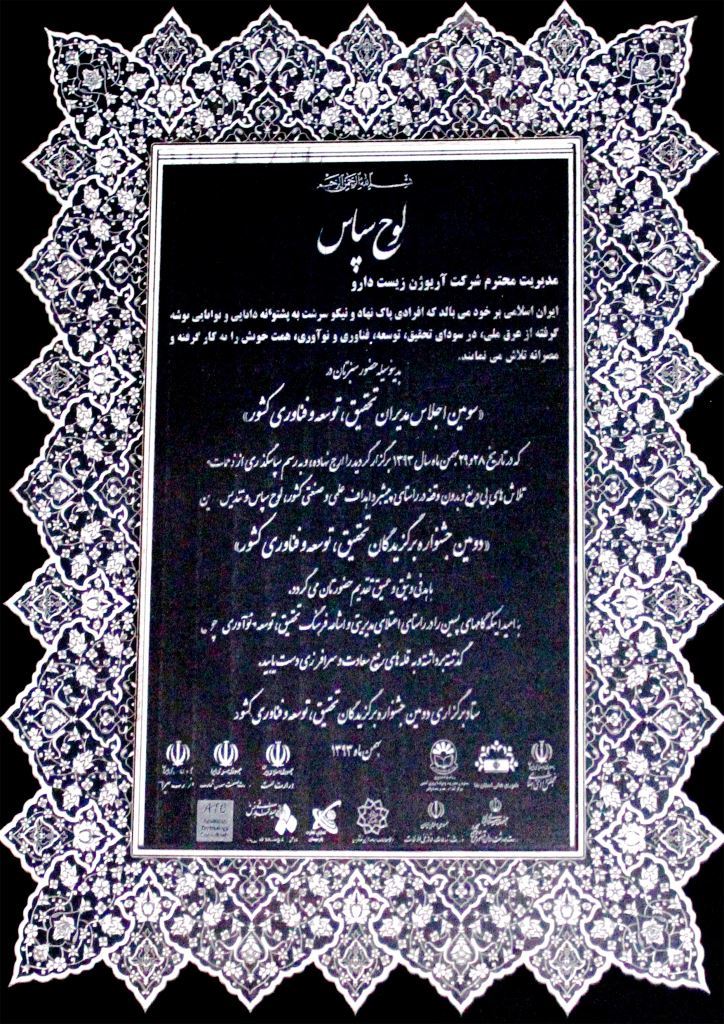 بسم الله الرحمن الرحیم
لوح سپاس
مدیریت محترم شرکت آریوژن زیست دارو
ایران اسلامی بر خود می بالد که افرادی پاک نهاد و نیکو سرشت به پشتوانه دانایی و توانایی توشه
گرفته از عرق ملی، در سودای تحقیق، توسعه، فناوری و نوآوری، همت خویش را به کار گرفته و
مصرانه تلاش می نمایند.
بدینوسیله حضور سبزتان در
«سومین اجلاس مدیران تحقیق، توسعه و فناوری کشور»
که در تاریخ ۲۸ و ۲۹ بهمن ماه سال ۱۳۹۳ برگزار گردید را ارج نهاده و به رسم سپاسگذاری از زحمات
تلاش های بی دریغ و بدون وقفه در راستای پیشبرد اهداف علمی و صنعتی کشور، لوح سپاس و تندیس
«دومین جشنواره برگزیدگان تحقیق، توسعه و فناوری کشور»
تقدیم حضورتان می گردد.
به امید اینکه گامهای پسین را در راستای اعتلای مدیریتی و اشاعه فرهنگ تحقیق، توسعه و نوآوری چون
گذشته برداشته و به قله های رفیع سعادت و سرافرازی دست یابید.
ستاد برگزاری دومین جشنواره برگزیدگان تحقیق، توسعه و فناوری کشور
بهمن ماه ۱۳۹۳
ATC